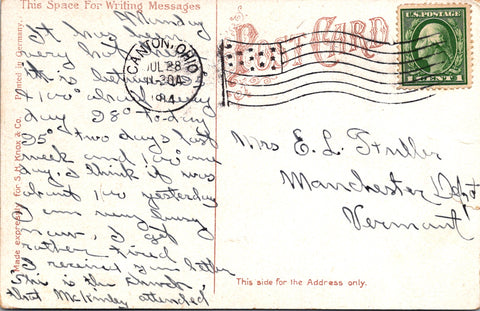 This Space For Writing Messages
Monday
It has been
very hot
this is between 95°
+ 100° about every
day 98° to-day
95° two days last
week and 100° one
day. I think it was
about 100 yesterday
I am very busy
now, I get
rather tired
I received your letter
This is the church
that McKinley attended
Made expressly for S. H. Knox & Co. Printed in Germany.
CANTON, OHIO
JUL 28
-30A
14
POST CARD
U.S. POSTAGE
1 CENTS 1
Mrs E. L. Fuller
Manchester Depot
Vermont
This side for the Address only.